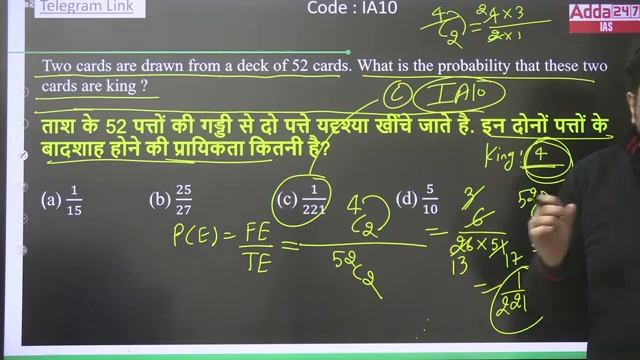 Telegram Link
Code : IA10
Adda247
IAS
⁴C₂ = ²4 × 3 / 2 × 1
Two cards are drawn from a deck of 52 cards. What is the probability that these two
cards are king ?
C IA10
ताश के 52 पत्तों की गड्डी से दो पत्ते यदृच्छया खींचे जाते है. इन दोनों पत्तों के
बादशाह होने की प्रायिकता कितनी है?
King: 4
(a) 1/15
(b) 25/27
(c) 1/221
(d) 5/10
P(E) = FE/TE = ⁴C₂ / ⁵²C₂ = 6 / 26 × 51
3
13 17
= 1/221